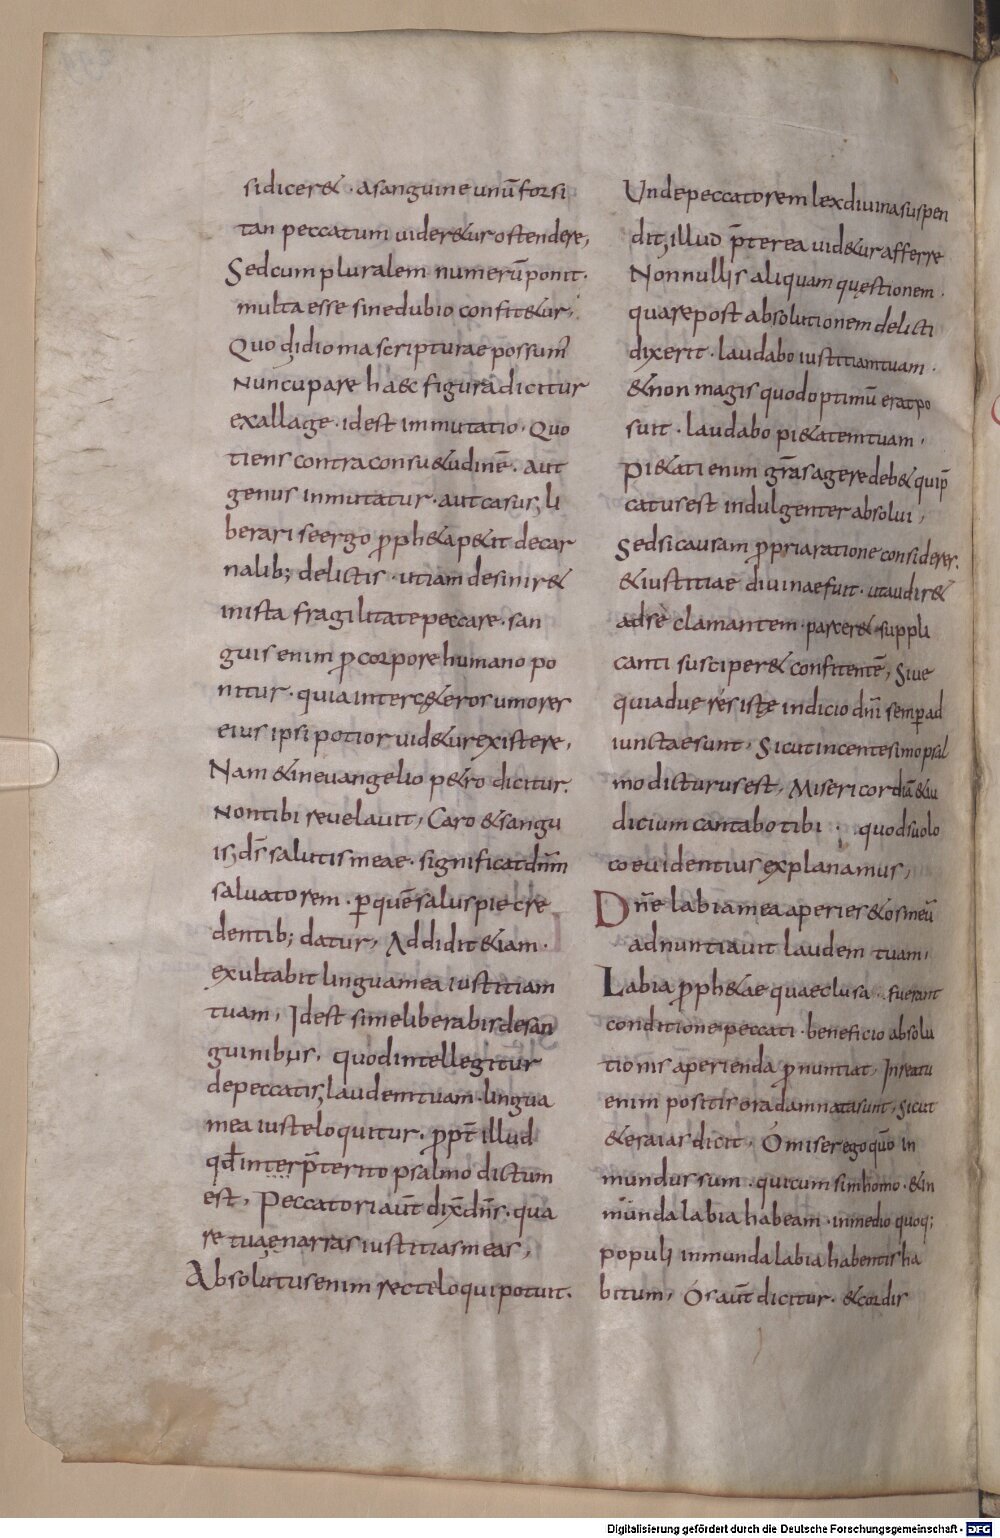 sidicer& · a sanguine unū forsi
tan peccatum uider&ur ostendere,
Sed cum pluralem numerū ponit·
multa esse sine dubio confit&ur,
Quod idioma scripturae possum̄
Nuncupare haec figura dicitur
exallage · id est inmutatio · Quo
tiens contra consu&udinē · aut
genus inmutatur · aut casus; li
berari se ergo p̄ph&a p&it de car
nalib; delictis · ut iam desinir&
in ista fragilitate peccare · san
guis enim p̄ corpore humano po
nitur · quia inter c&eros umores
eius ipsi potior uid&ur existere,
Nam & in euangelio p&ro dicitur·
Non tibi reuelauit, Caro & sangu
is; ds̄ salutis meae · significat dnm̄
saluatorem · p̄ quē salus pie cre
dentib; datur, Addidit & iam·
exultabit lingua mea iustitiam
tuam, Id est si me liberabis de san
guinibus, quod intellegitur
de peccatis; laudem tuam · lingua
mea iuste loquitur · p̄pt̄ illud
qđ in terp̄terito psalmo dictum
est, Peccatori aūt dix̄ dn̄s · qua
re tu aenarras iustitias meas,
Absolutus enim recte loqui potuit·
Unde peccatorem lex diuina suspen
dit; illud p̄terea uid&ur afferre
Nonnullis aliquam questionem·
quare post absolutionem delicti
dixerit · laudabo iustitiam tuam·
& non magis quod optimū erat po
suit · laudabo pi&atem tuam,
Pi&ati enim grās agere deb& qui p̄
catus est indulgenter absolui,
Sed si causam p̄pria ratione considerer·
& iustitiae diuinae fuit · ut audir&
ad se clamantem · parcer& suppli
canti susciper& confitentē, Siue
quia due res iste in dicio dn̄i semp̄ ad
iunctae sunt, Sicut in centesimo psal
mo dicturus est, Misericordiā & iu
dicium cantabo tibi · quod suo lo
co euidentius explanamus,
Dn̄e labia mea aperies & os meū
adnuntiauit laudem tuam,
Labia p̄ph&ae quae clusa · fuerant
conditione peccati · beneficio absolu
tionis aperienda p̄nuntiat, In reatu
enim positis ora damnata sunt, Sicut
& esaias dicit, O miser ego quō in
mundus sum · qui cum sim homo · & in
munda labia habeam · in medio quoq;
populi inmunda labia habentis ha
bitum, Os aūt dicitur · & cordis
Digitalisierung gefördert durch die Deutsche Forschungsgemeinschaft - DFG